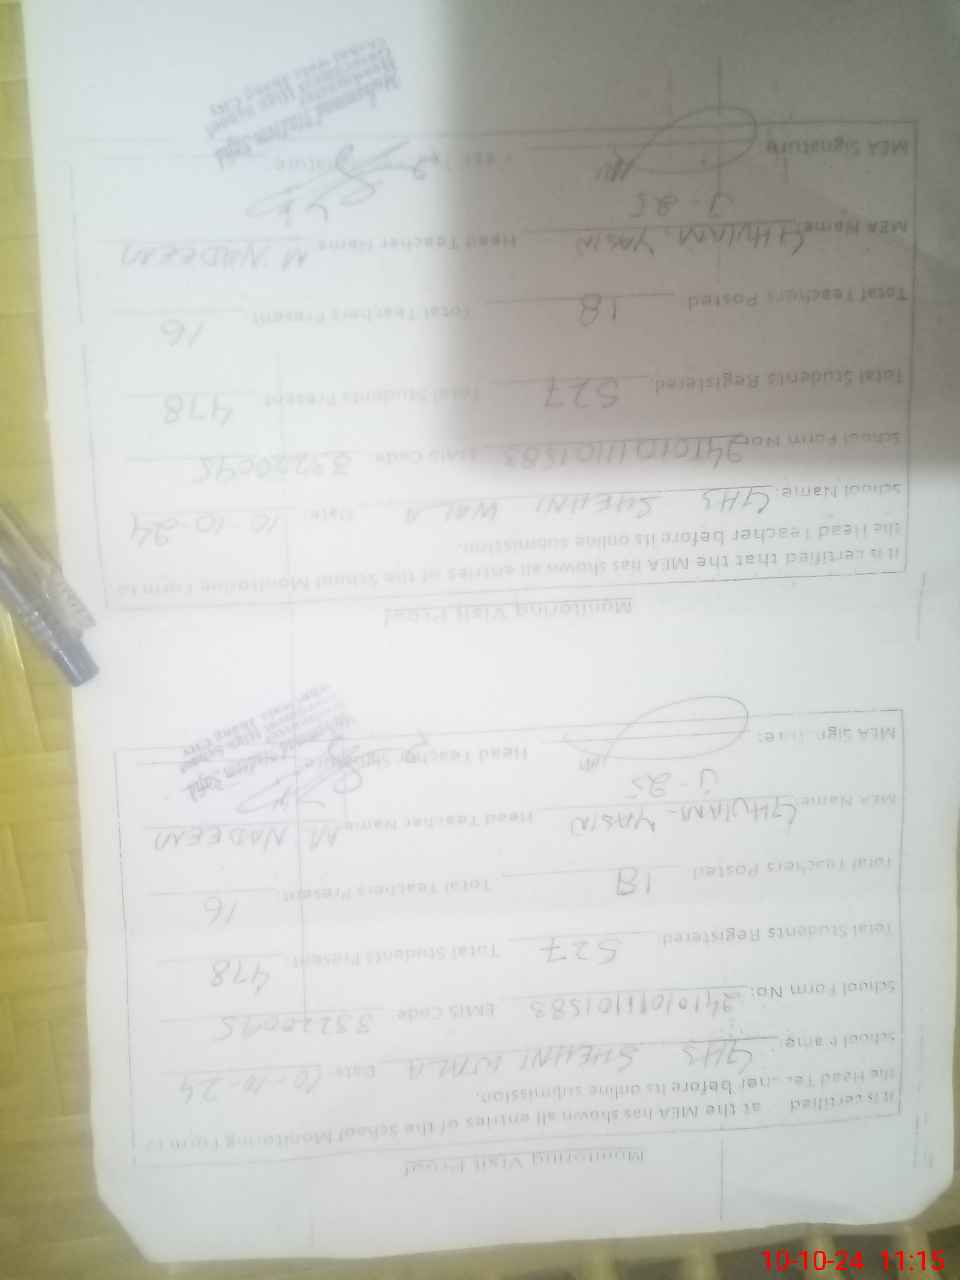 Monitoring Visit Proof
It is certified that the MEA has shown all entries of the School Monitoring Form to
the Head Teacher before its online submission.
School Name: GHS SHEHNI WALA Date: 10-10-24
School Form No: 2410101101583 EMIS Code: 33220095
Total Students Registered: 527 Total Students Present: 478
Total Teachers Posted: 18 Total Teachers Present: 16
MEA Name: GHULAM YASIN Head Teacher Name: M NADEEM
J-25
MEA Signature: Head Teacher Signature:
Monitoring Visit Proof
It is certified that the MEA has shown all entries of the School Monitoring Form to
the Head Teacher before its online submission.
School Name: GHS SHEHNI WALA Date: 10-10-24
School Form No: EMIS Code: 33220095
Total Students Registered: 527 Total Students Present: 478
Total Teachers Posted: 18 Total Teachers Present: 16
MEA Name: GHULAM YASIN Head Teacher Name: M. NADEEM
J-25
MEA Signature Signature:
10-10-24 11:15